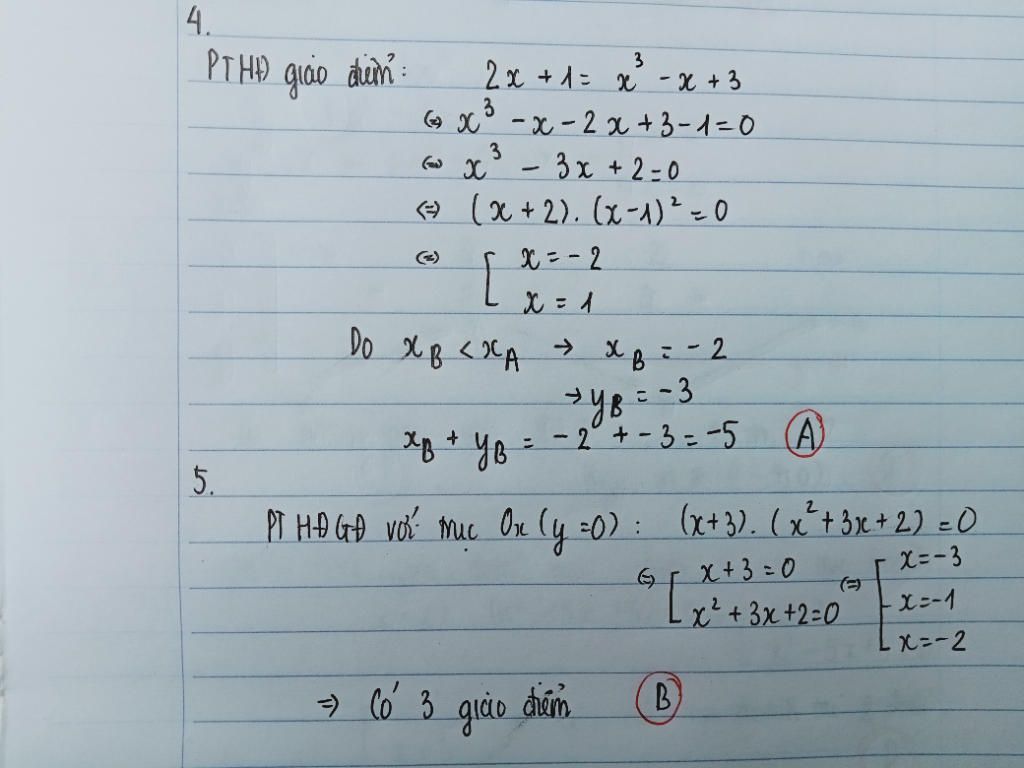 4.
PTHĐ giao điểm: 2x + 1 = x³ - x + 3
⇔ x³ - x - 2x + 3 - 1 = 0
⇔ x³ - 3x + 2 = 0
⇔ (x + 2). (x - 1)² = 0
⇔ [ x = -2
x = 1
Do x_B < x_A → x_B = -2
→ y_B = -3
x_B + y_B = -2 + -3 = -5 A
5.
PT HĐGĐ với trục Ox (y = 0) : (x+3). (x² + 3x + 2) = 0
⇔ [ x + 3 = 0 ⇔ [ x = -3
x² + 3x + 2 = 0 x = -1
x = -2
⇒ Có 3 giao điểm B